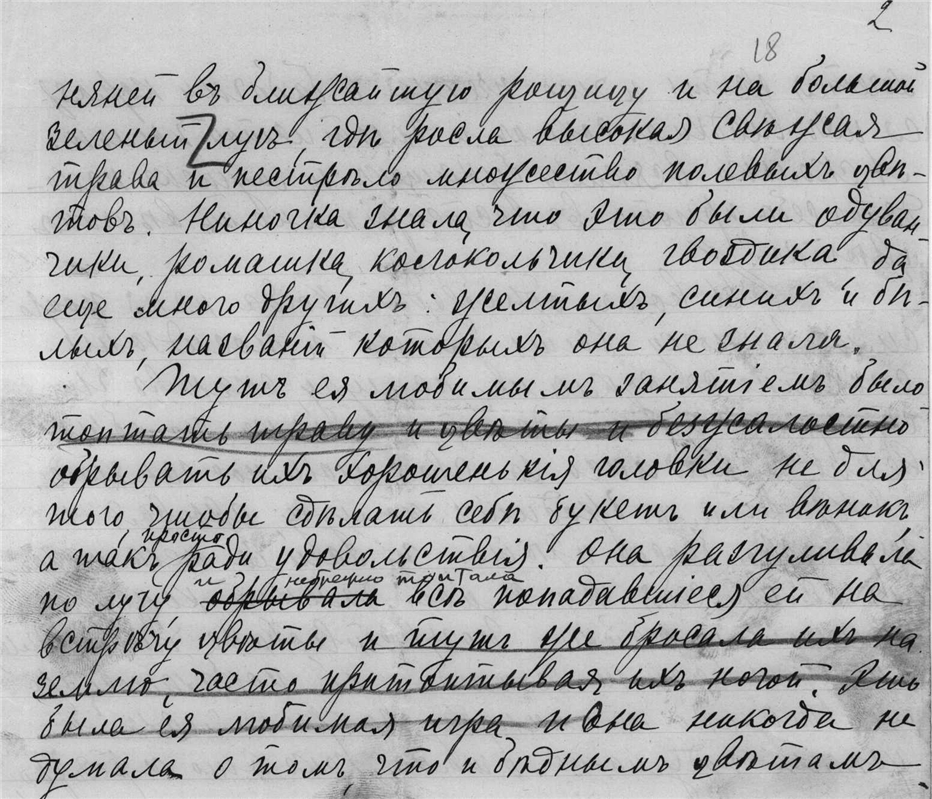 2
18
няней въ ближайшую рощицу и на большой
зеленый лугъ, гдѣ росла высокая свѣжая
трава и пестрѣло множество полевыхъ цвѣ-
товъ. Ниночка знала, что это были одуван
чики, ромашка, колокольчики, гвоздика да
еще много другихъ: желтыхъ, синихъ и бѣ-
лыхъ, названій которыхъ она не знала.
Тутъ ея любимымъ занятіемъ было
топтать траву и цвѣты и безжалостно
обрывать ихъ хорошенькія головки не для
того, чтобы сдѣлать себѣ букетъ или вѣнокъ,
а такъ просто ради удовольствія. Она разгуливала
по лугу и обрывала небрежно топтала всѣ попадавшіеся ей на
встрѣчу цвѣты и тутъ же бросала ихъ на
землю, часто притаптывая ихъ ногой. Это
была ея любимая игра и она никогда не
думала о томъ, что и бѣднымъ цвѣтамъ